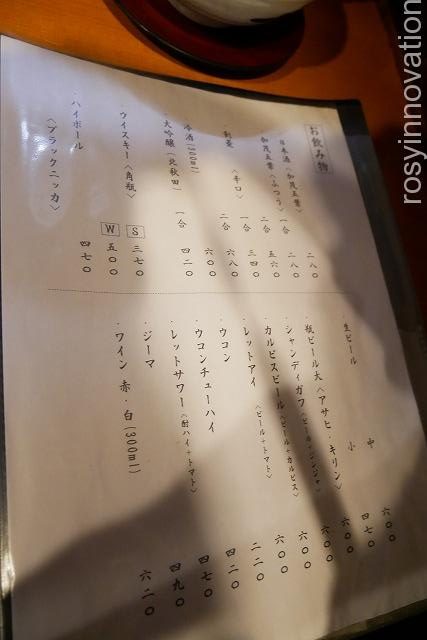 お飲み物
日本酒(加茂五葉) 一合 二八〇
加茂五葉〈ふつう〉 一合 二八〇
二合 五六〇
剣菱 〈辛口〉 一合 三四〇
二合 六八〇
冷酒(300ml) 六〇〇
大吟醸(北秋田) 一合 四二〇
ウイスキー〈角瓶〉 S 三七〇
W 五〇〇
ハイボール
〈ブラックニッカ〉 四七〇
・生ビール 中 六〇〇
小 四七〇
・瓶ビール大〈アサヒ・キリン〉 六〇〇
・シャンディガフ〈ビール+ジンジャ〉 六〇〇
・カルピスビール〈ビール+カルピス〉 六〇〇
・レットアイ 〈ビール+トマト〉 六〇〇
・ウコン 二二〇
・ウコンチューハイ 四二〇
・レットサワー〈酎ハイ+トマト〉 四七〇
・ジーマ 四九〇
・ワイン 赤・白(300ml) 六二〇
rosyinnovation